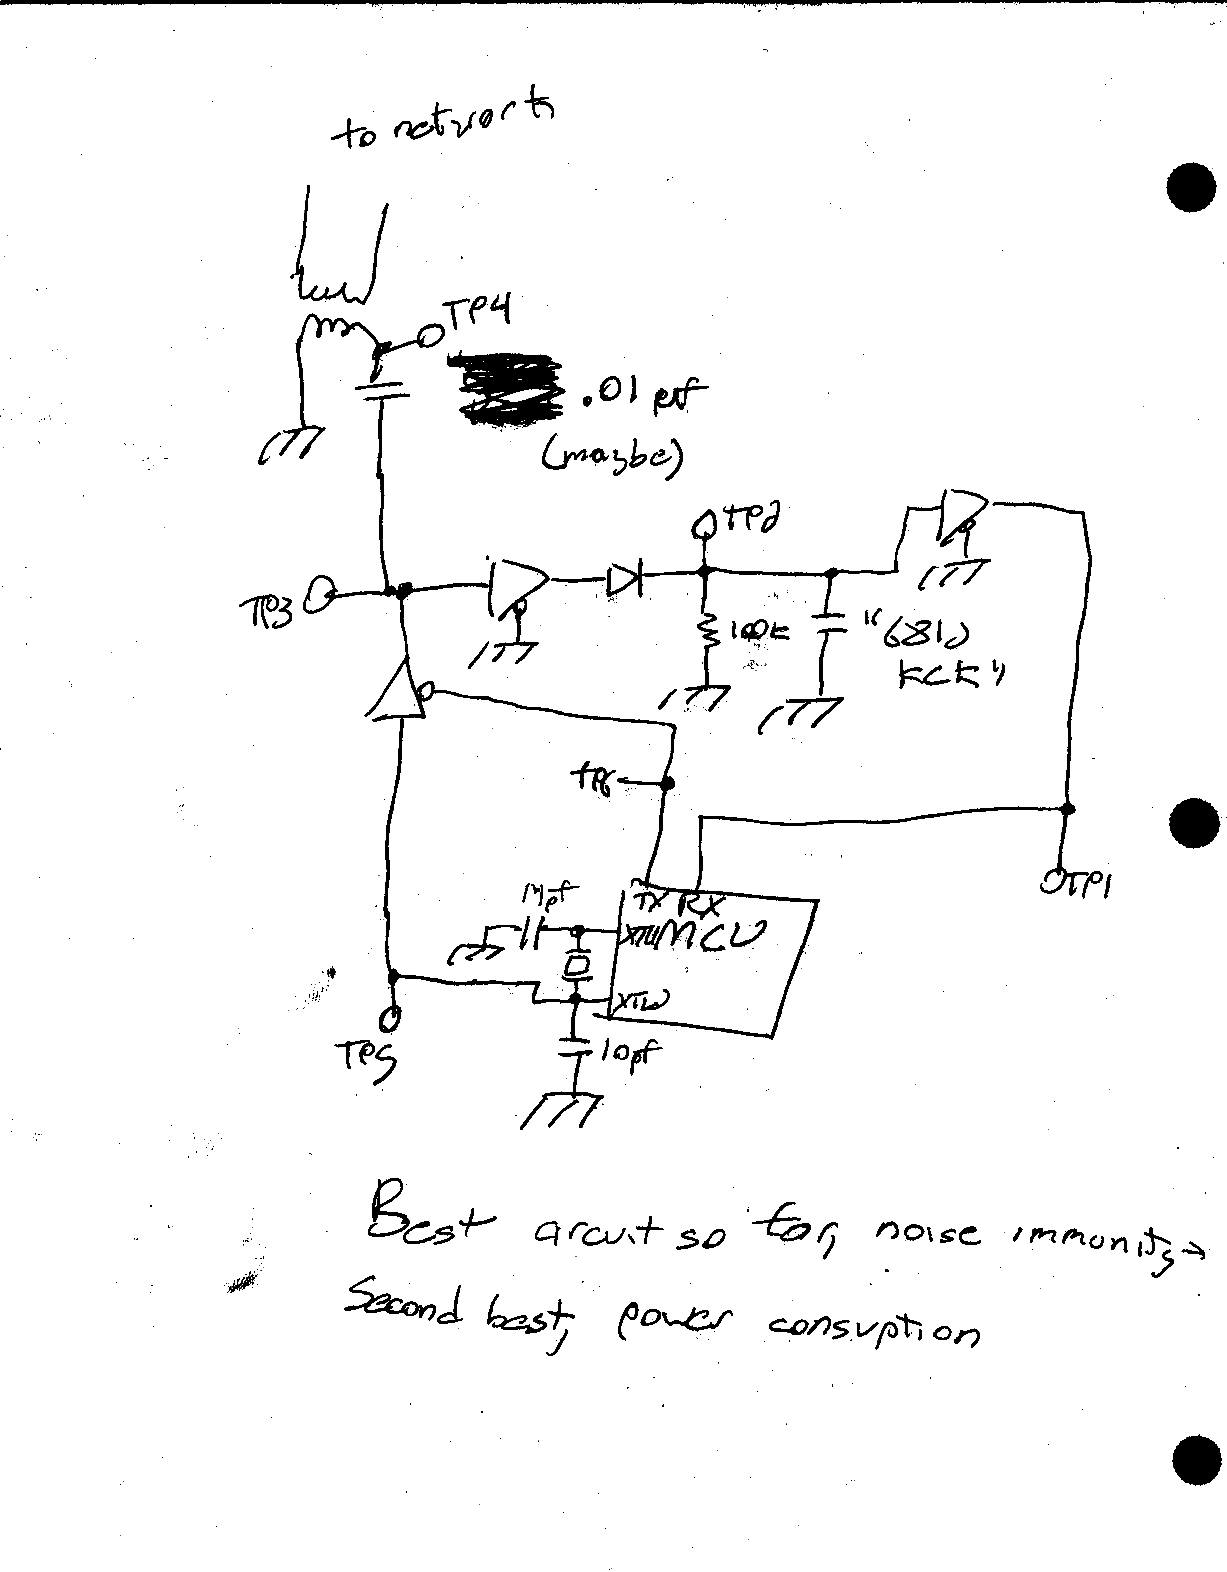 to network
TP4
.01 µf
(maybe)
TP2
TP3
100k
"681J
KCK"
TP6
TP1
TX RX
MCU
10pf
TP5
Best circuit so far, noise immunity →
Second best, power consuption